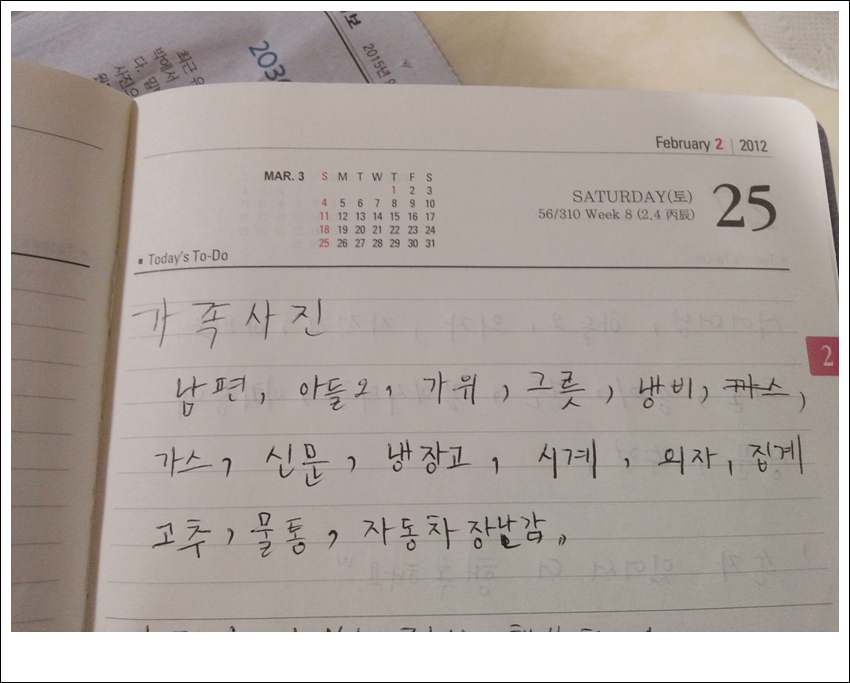 보
2015년
203
최근 우
박에서
다. 밀
사진으
February 2 | 2012
MAR. 3 S M T W T F S
1 2 3
4 5 6 7 8 9 10
11 12 13 14 15 16 17
18 19 20 21 22 23 24
25 26 27 28 29 30 31
SATURDAY(토)
56/310 Week 8 (2.4 丙辰)
25
▪ Today's To-Do
가족사진
남편, 아들2, 가위, 그릇, 냄비, 까스,
2
가스, 신문, 냉장고, 시계, 의자, 집게
고추, 물통, 자동차 장난감,,